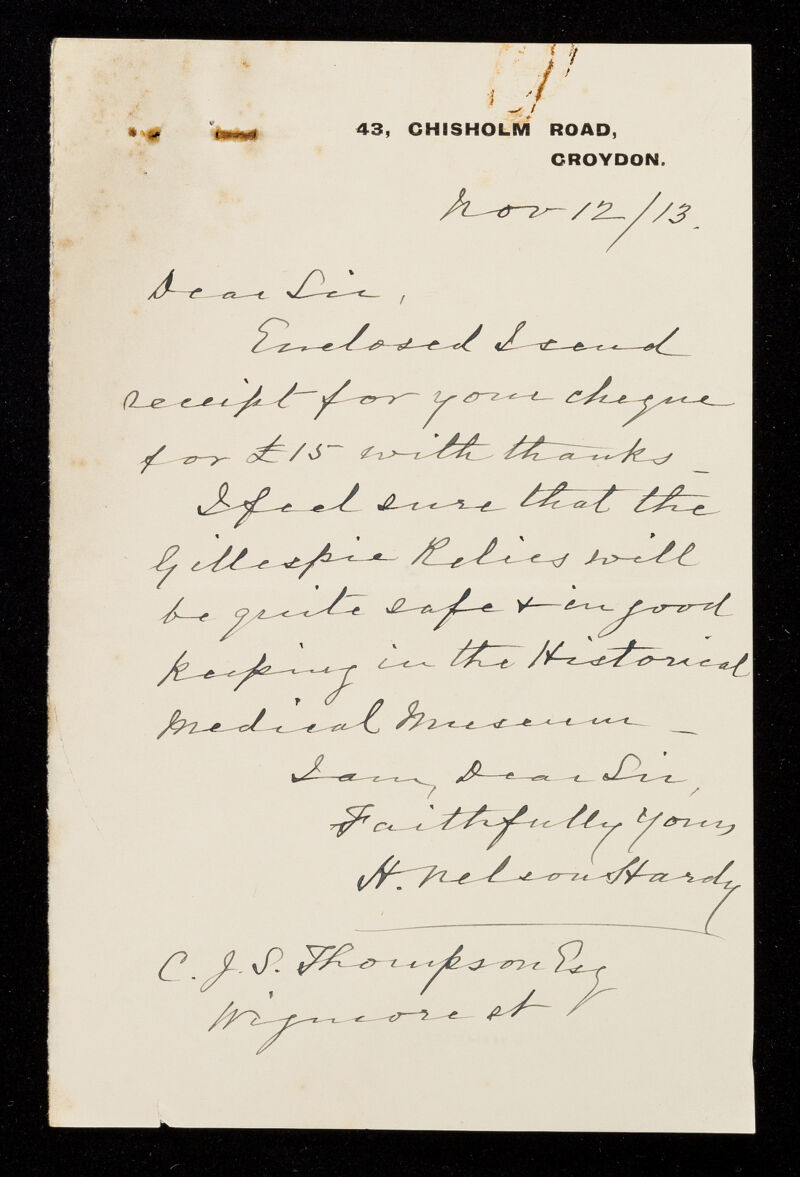 43, CHISHOLM ROAD,
CROYDON.
Nov 12/13.
Dear Sir,
Enclosed I send
receipt for your cheque
for £15 with thanks_
I feel sure that the
Gillespie Relics will
be quite safe & in good
keeping in the Historical
Medical Museum_
I am, Dear Sir,
Faithfully Yours
H. Nelson Hardy
C. J. S. Thompson Esq
Wigmore st